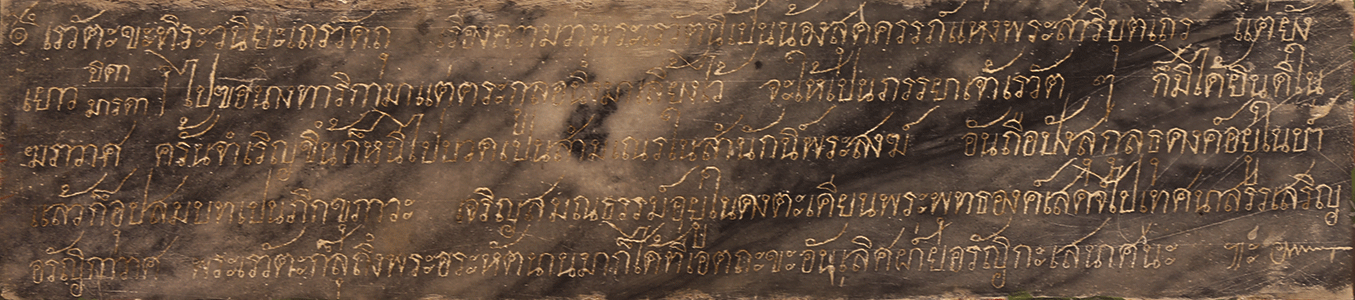 ๏ เรวัตะขะทิระวนิยะเถรวัตถุ เรื่องความว่าพระเรวัตนี้เปนน้องสุดครรภ์แห่งพระสาริบุตเถร แต่ยัง
เยาว บิดา มารดา ไปขอนางทาริกามาแต่ตระกูล จะให้เปนภรรยาเจ้าเรวัต ๆ ก็มิได้ยินดีใน
ฆราวาศ ครั้นจำเริญขึ้นก็หนีไปบวดเปนสามเณรในสำนักนิ์พระสงฆ์ อันถือปังสุกูลธุดงค์อยู่ในป่า
แล้วก็อุปสมบทเปนภิกขุภาวะ จริญสมณธรรม์อยู่ในดงตะเคียนพระพุทธองค์เสดจ์ไปเทศนาสรรเสริญ
อรัญิกาวาศ พระเรวัตะก็ลุถึงพระอระหัตนานมาก็ได้ที่เอตถะขะอันเลิศฝ่ายอรัญิกะเสนาศนะ ๚ะ